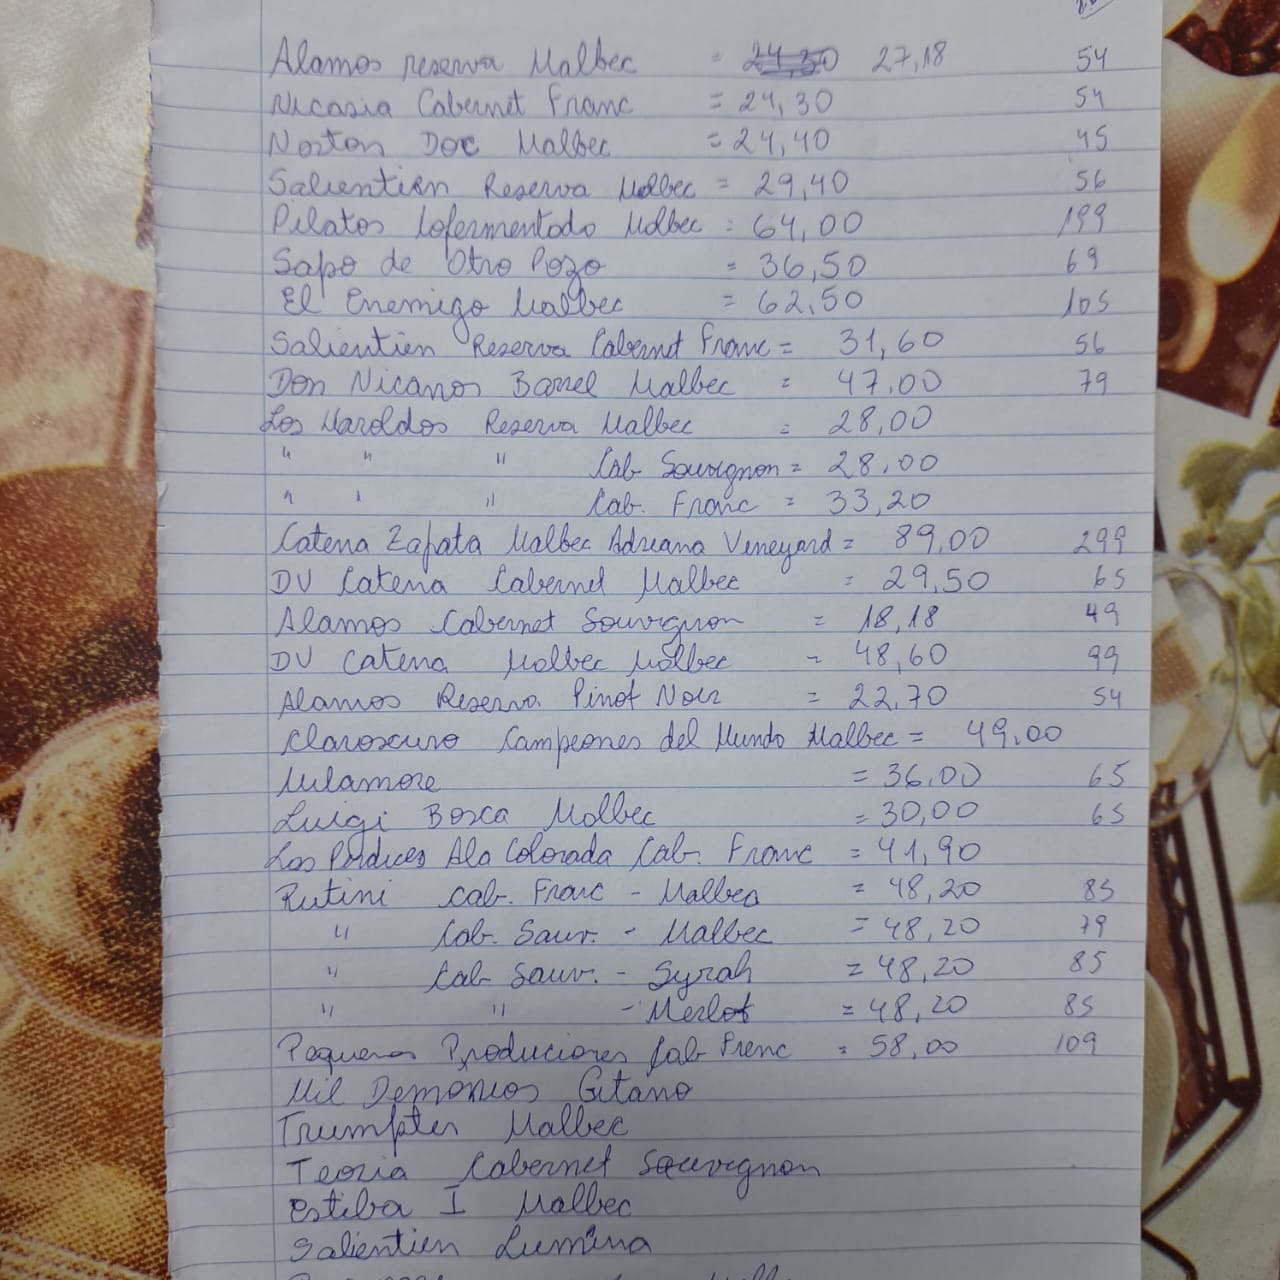 Alamos reserva Malbec = 24,30 27,18 54
Nicasia Cabernet Franc = 24,30 54
Norton Doc Malbec = 24,40 45
Salientien Reserva Malbec = 29,40 56
Pilatos Cofermentado Malbec = 64,00 199
Sapo de Otro Pozo = 36,50 69
El Enemigo Malbec = 62,50 105
Salientien Reserva Cabernet Franc = 31,60 56
Don Nicanos Barrel Malbec = 47,00 79
Los Haroldos Reserva Malbec = 28,00
" " " Cab Sauvignon = 28,00
" " " Cab. Franc = 33,20
Catena Zapata Malbec Adreana Veneyard = 89,00 299
DV Catena Cabernet Malbec = 29,50 65
Alamos Cabernet Souvignon = 18,18 49
DV Catena Malbec Malbec = 48,60 99
Alamos Reserva Pinot Noir = 22,70 54
Claroscuro Campeones del Mundo Malbec = 49,00
Milamore = 36,00 65
Luigi Bosca Malbec = 30,00 65
Las Perdices Ala Colorada Cab. Franc = 41,90
Rutini Cab. Franc - Malbec = 48,20 85
" Cab. Sauv. - Malbec = 48,20 79
" Cab Sauv. - Syrah = 48,20 85
" " - Merlot = 48,20 85
Pequenos Produciones Cab Frenc = 58,00 109
Mil Demonios Gitano
Trumpter Malbec
Teoria Cabernet Sauvignon
Estiba I Malbec
Salientien Lumina